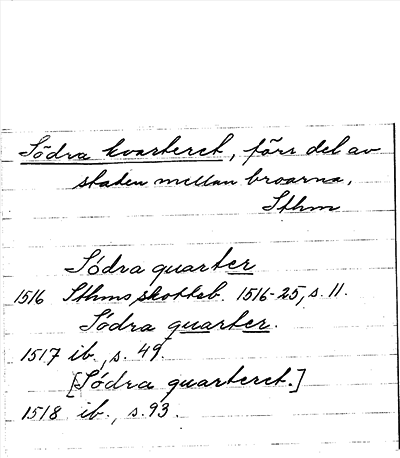 Södra kvarteret, förr del av
staden mellan broarna,
Sthm
Södra quarter
1516 Sthms skotteb. 1516-25, s. 11.
Södra quarter.
1517 ib., s. 49.
[Södra quarteret.]
1518 ib., s. 93.